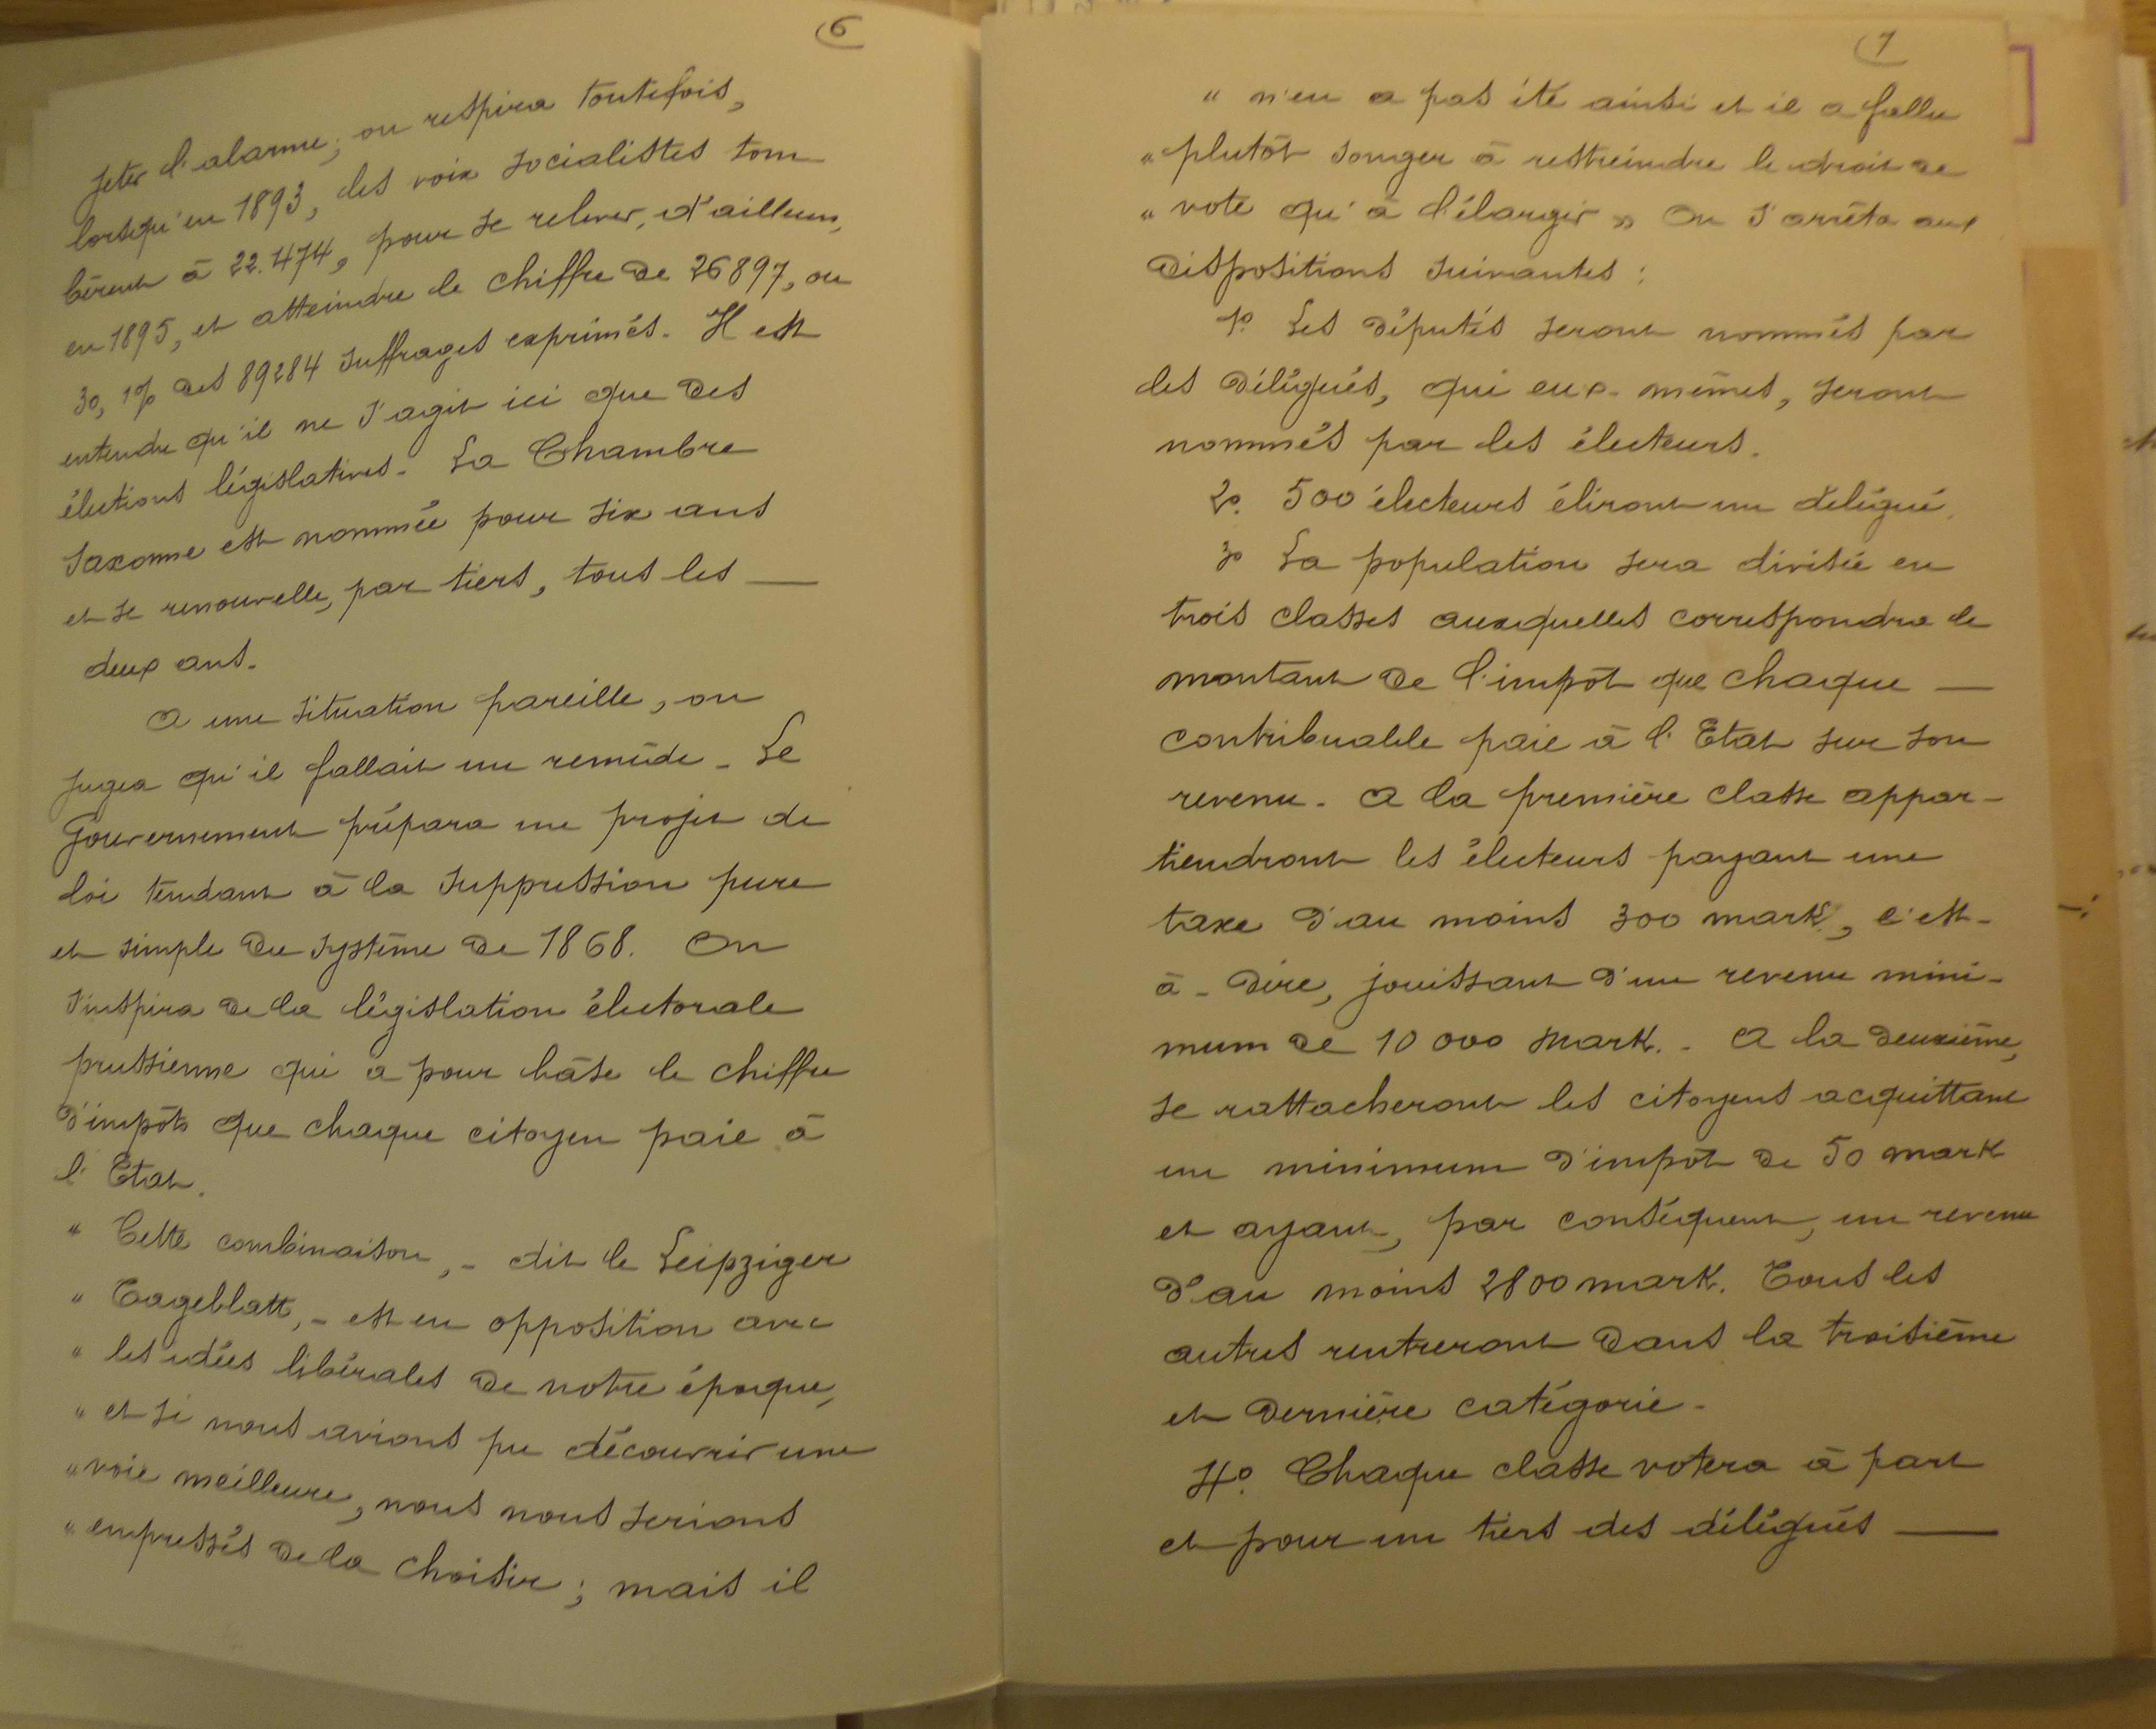 6
jeter l'alarme; on respira toutefois,
lorsqu'en 1893, les voix socialistes tom
bèrent à 22.474, pour se relever, d'ailleurs,
en 1895, et atteindre le chiffre de 26897, ou
30,1% des 89284 suffrages exprimés. Il est
entendu qu'il ne s'agit ici que des
élections législatives. La Chambre
saxonne est nommée pour six ans
et se renouvelle, par tiers, tous les —
deux ans.
A une situation pareille, on
jugea qu'il fallait un remède. Le
Gouvernement prépara un projet de
loi tendant à la suppression pure
et simple du système de 1868. On
s'inspira de la législation électorale
prussienne qui a pour bâse le chiffre
d'impôts que chaque citoyen paie à
l'Etat.
" Cette combinaison, - dit le Leipziger
" Tageblatt, - est en opposition avec
" les idées libérales de notre époque,
" et si nous avions pu découvrir une
" voie meilleure, nous nous serions
" empressés de la choisir; mais il
7
" n'en a pas été ainsi et il a fallu
" plutôt songer à restreindre le droit de
" vote qu'à l'élargir » On s'arrêta aux
dispositions suivantes :
1º. Les députés seront nommés par
des délégués, qui eux-mêmes, seront
nommés par les électeurs.
2º. 500 électeurs éliront un délégué.
3º La population sera divisée en
trois classes auxquelles correspondra le
montant de l'impôt que chaque —
contribuable paie à l'Etat sur son
revenu. A la première classe appar-
tiendront les électeurs payant une
taxe d'au moins 300 mark, c'est-
à-dire, jouissant d'un revenu mini-
mum de 10 000 mark. - A la deuxième,
se rattacheront les citoyens acquittant
un minimum d'impôt de 50 mark
et ayant, par conséquent, un revenu
d'au moins 2800 mark. Tous les
autres rentreront dans la troisième
et dernière catégorie.
4º. Chaque classe votera à part
et pour un tiers des délégués —